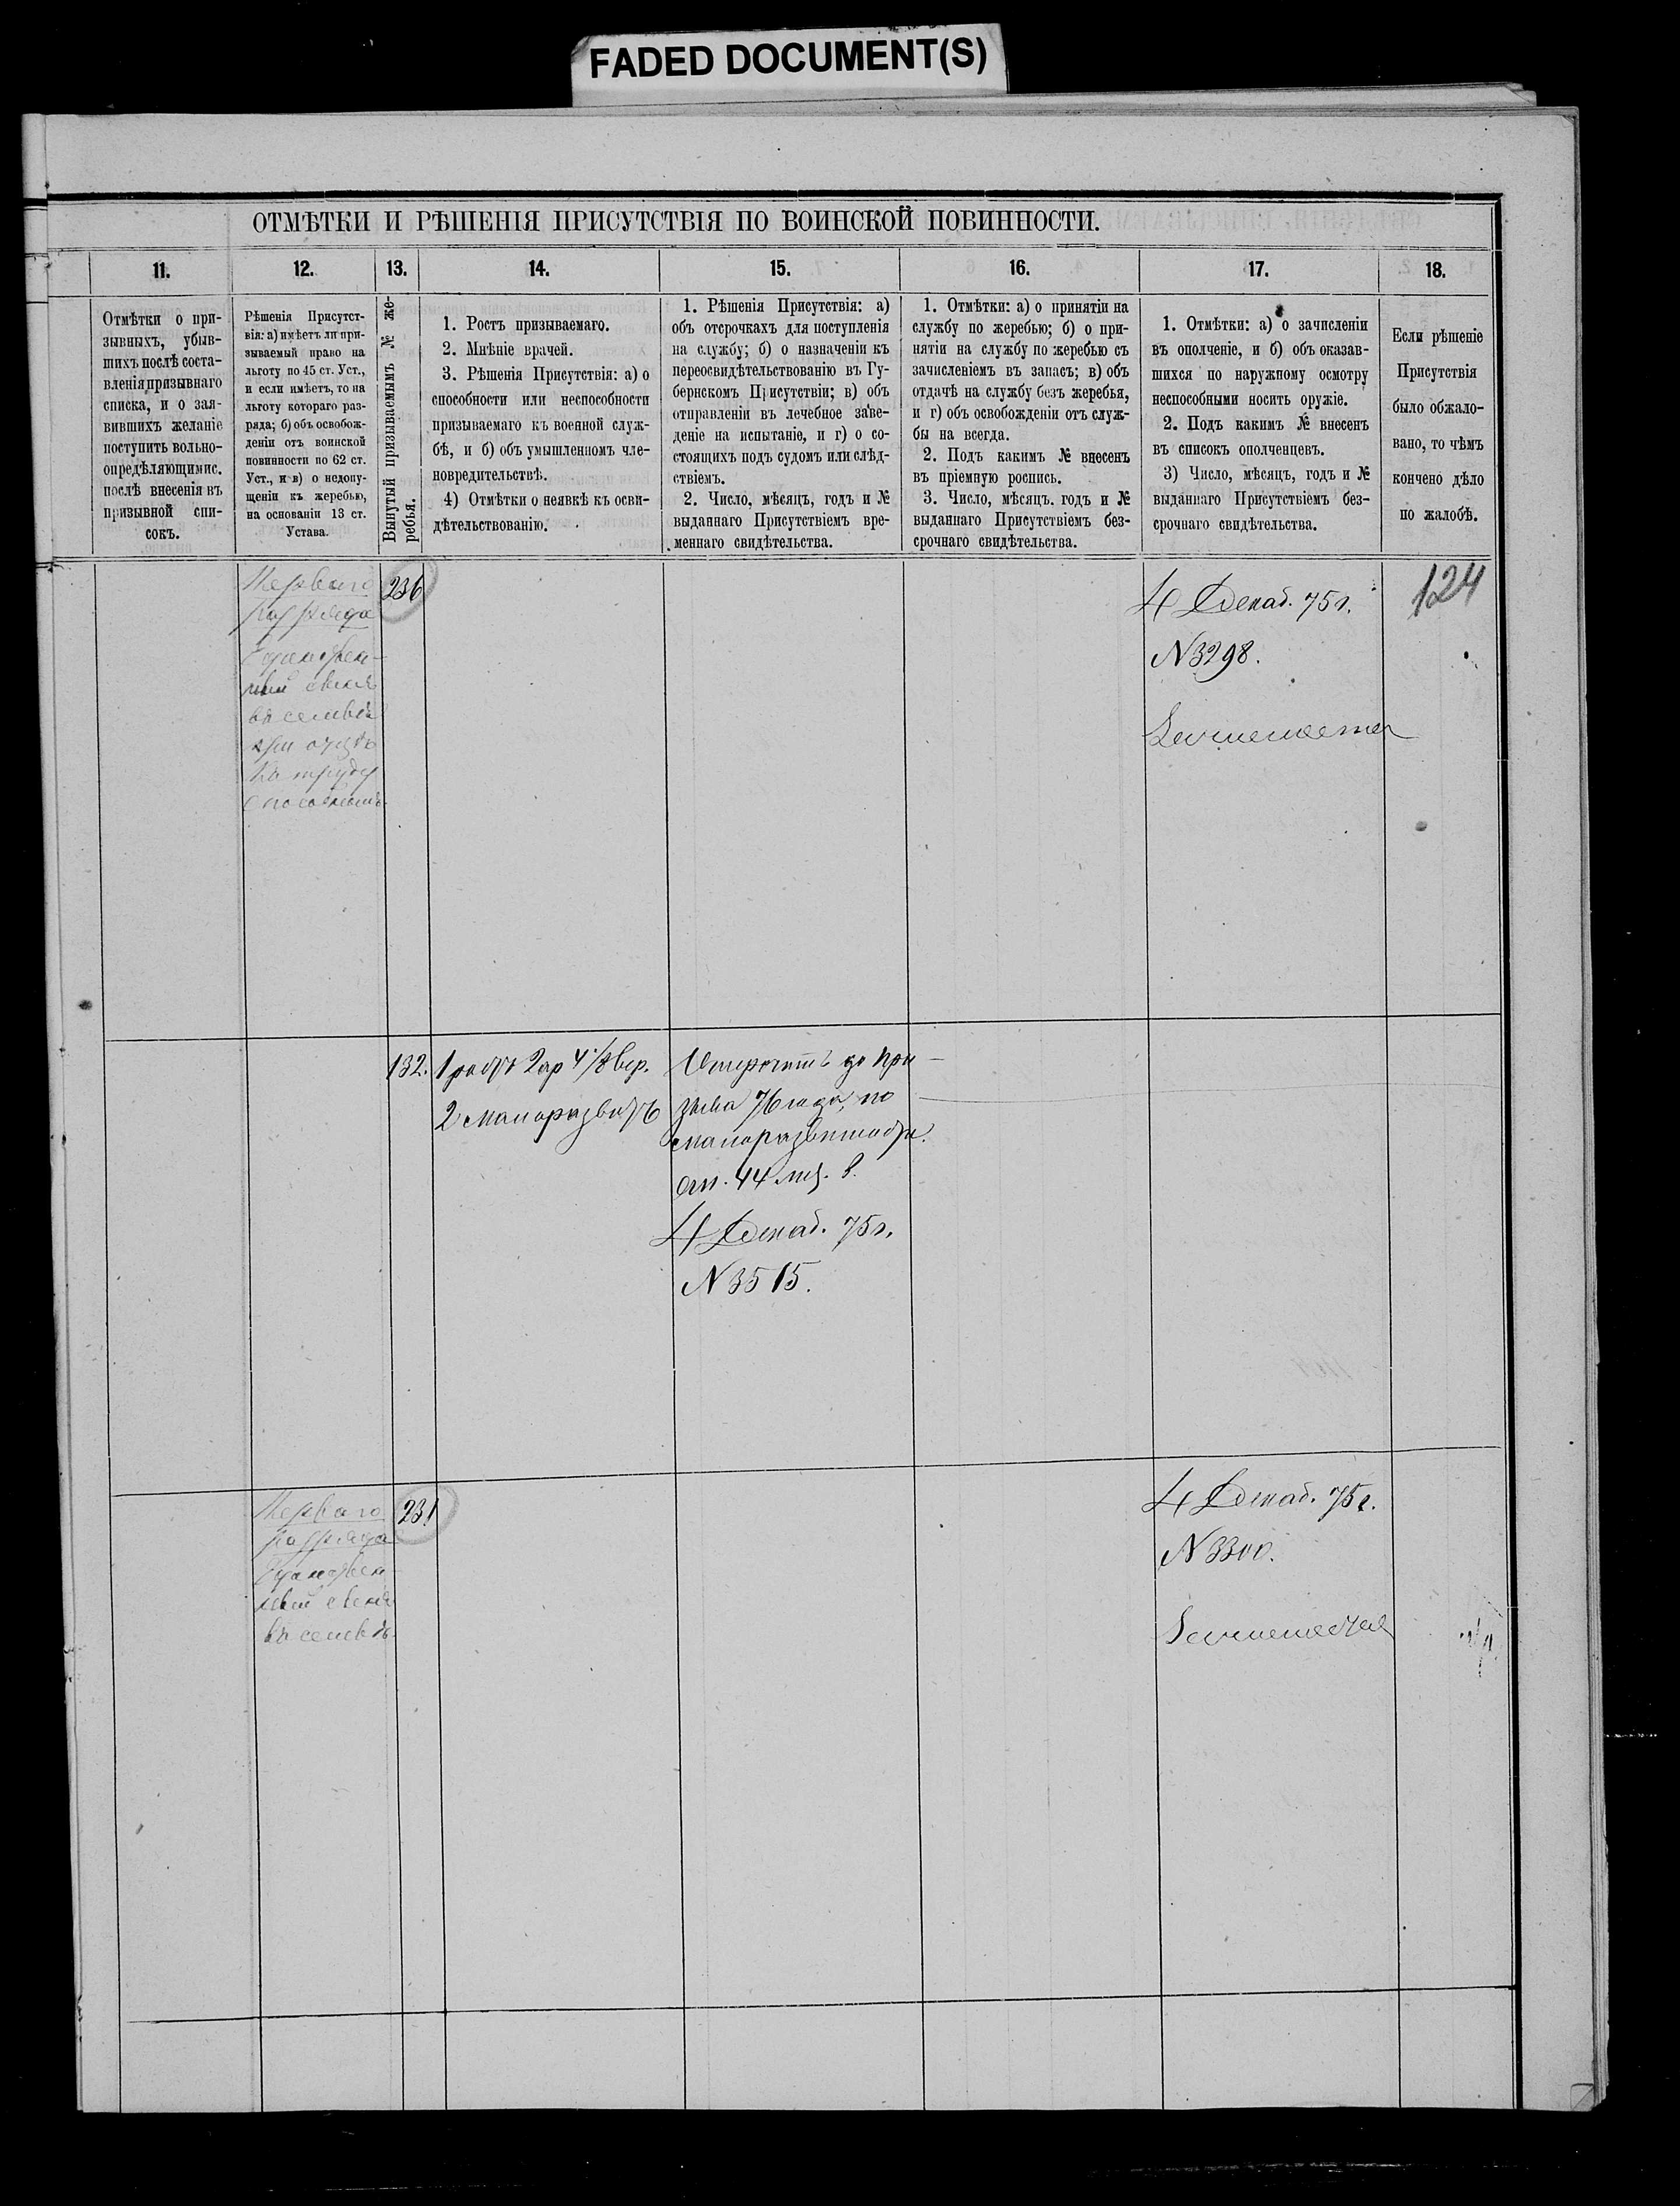 FADED DOCUMENT(S)
ОТМѢТКИ И РѢШЕНІЯ ПРИСУТСТВІЯ ПО ВОИНСКОЙ ПОВИННОСТИ.
11.
12.
13.
14.
15.
16.
17.
18.
Отмѣтки о при-
зывныхъ, убыв-
шихъ послѣ соста-
вленія призывнаго
списка, и о зая-
вившихъ желаніе
поступить вольно-
опредѣляющимис.
послѣ внесенія въ
призывной спи-
сокъ.
Рѣшенія Присутст-
вія: а) имѣетъ ли при-
зываемый право на
льготу по 45 ст. Уст.,
и если имѣетъ, то на
льготу котораго раз-
ряда; б) объ освобож-
деніи отъ воинской
повинности по 62 ст.
Уст., и в) о недопу-
щеніи къ жеребью,
на основаніи 13 ст.
Устава.
Вынутый призываемымъ № же-
ребья.
1. Ростъ призываемаго.
2. Мнѣніе врачей.
3. Рѣшенія Присутствія: а) о
способности или неспособности
призываемаго къ военной служ-
бѣ, и б) объ умышленномъ чле-
новредительствѣ.
4) Отмѣтки о неявкѣ къ осви-
дѣтельствованію.
1. Рѣшенія Присутствія: а)
объ отсрочкахъ для поступленія
на службу; б) о назначеніи къ
переосвидѣтельствованію въ Гу-
бернскомъ Присутствіи; в) объ
отправленіи въ лечебное заве-
деніе на испытаніе, и г) о со-
стоящихъ подъ судомъ или слѣд-
ствіемъ.
2. Число, мѣсяцъ, годъ и №
выданнаго Присутствіемъ вре-
меннаго свидѣтельства.
1. Отмѣтки: а) о принятіи на
службу по жеребью; б) о при-
нятіи на службу по жеребью съ
зачисленіемъ въ запасъ; в) объ
отдачѣ на службу безъ жеребья,
и г) объ освобожденіи отъ служ-
бы на всегда.
2. Подъ какимъ № внесенъ
въ пріемную роспись.
3. Число, мѣсяцъ. годъ и №
выданнаго Присутствіемъ без-
срочнаго свидѣтельства.
1. Отмѣтки: а) о зачисленіи
въ ополченіе, и б) объ оказав-
шихся по наружному осмотру
неспособными носить оружіе.
2. Подъ какимъ № внесенъ
въ списокъ ополченцевъ.
3) Число, мѣсяцъ, годъ и №
выданнаго Присутствіемъ без-
срочнаго свидѣтельства.
Если рѣшеніе
Присутствія
было обжало-
вано, то чѣмъ
кончено дѣло
по жалобѣ.
Перваго
разряда
Единствен-
ный сынъ
въ семьѣ
при отцѣ
къ труду
способномъ
236
4 Декаб. 75 г.
N 3298.
124
132.
1 ростъ 2 ар 4 1/8 вер.
2 малоразвитъ
Отсрочить до при-
зыва 76 года, по
малоразвитости.
ст. 44 лит. в.
4 Декаб. 75 г.
N 3515.
Перваго
разряда
Единствен-
ный сынъ
въ семьѣ.
231
4 Декаб. 75 г.
N 3300.